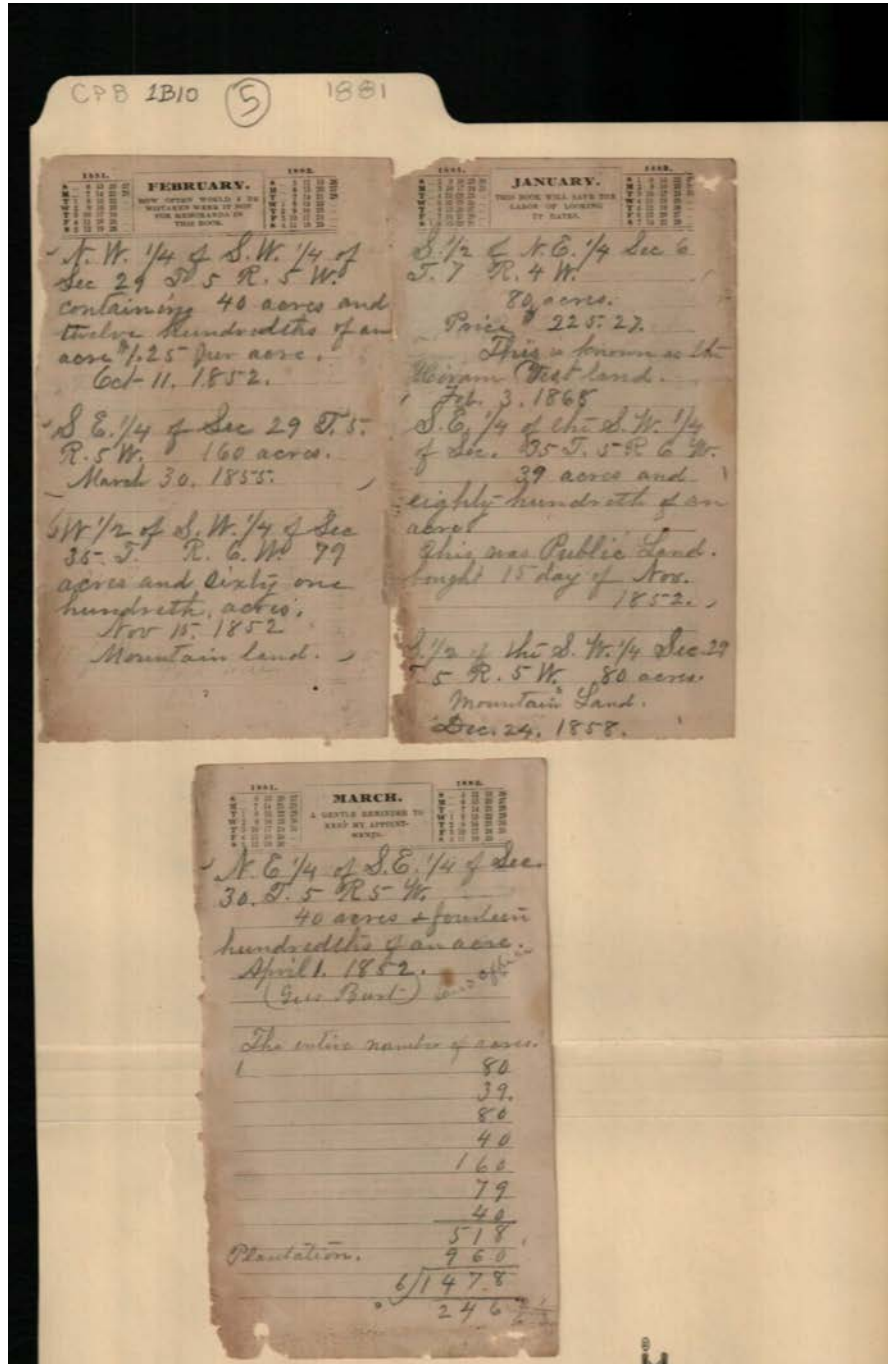 CPB 2B10 5 1881
1881. FEBRUARY. 1882.
HOW OFTEN WOULD I BE
MISTAKEN WERE IT NOT
FOR MEMORANDA IN
THIS BOOK.
N. W. 1/4 of S. W. 1/4 of
Sec 29 T 5 R. 5 W.
containing 40 acres and
twelve hundredths of an
acre $1.25 per acre.
Oct 11. 1852.
S E. 1/4 of Sec 29 T. 5.
R. 5 W. 160 acres.
March 30, 1855.
W 1/2 of S. W. 1/4 of Sec
35. T. R. 6. W. 79
acres and sixty one
hundreth, acres.
Nov 15. 1852
Mountain land.
1881. JANUARY. 1882.
THIS BOOK WILL SAVE THE
LABOR OF LOOKING
UP DATES.
S. 1/2 of N. E. 1/4 Sec 6
T. 7 R. 4 W.
80 acres.
Price $225.27.
This is known as the
Hiram land.
Feb. 3. 1868
S. E. 1/4 of the S. W. 1/4
of Sec. 35 T. 5 R 6 W.
39 acres and
eighty hundreth of an
acre
This was Public Land.
bought 15 day of Nov.
1852.
S. 1/2 of the S. W. 1/4 Sec 29
5 R. 5 W. 80 acres.
Mountain Land.
Dec. 24, 1858.
1881. MARCH. 1882.
A GENTLE REMINDER TO
KEEP MY APPOINT-
MENTS.
N. E. 1/4 of S. E. 1/4 of Sec.
30. T. 5 R 5 W.
40 acres & fourteen
hundredths of an acre.
April 1. 1852.
The entire number of acres.
1 80
39.
80
40
160
79
40
518
Plantation. 960
6/1478
246